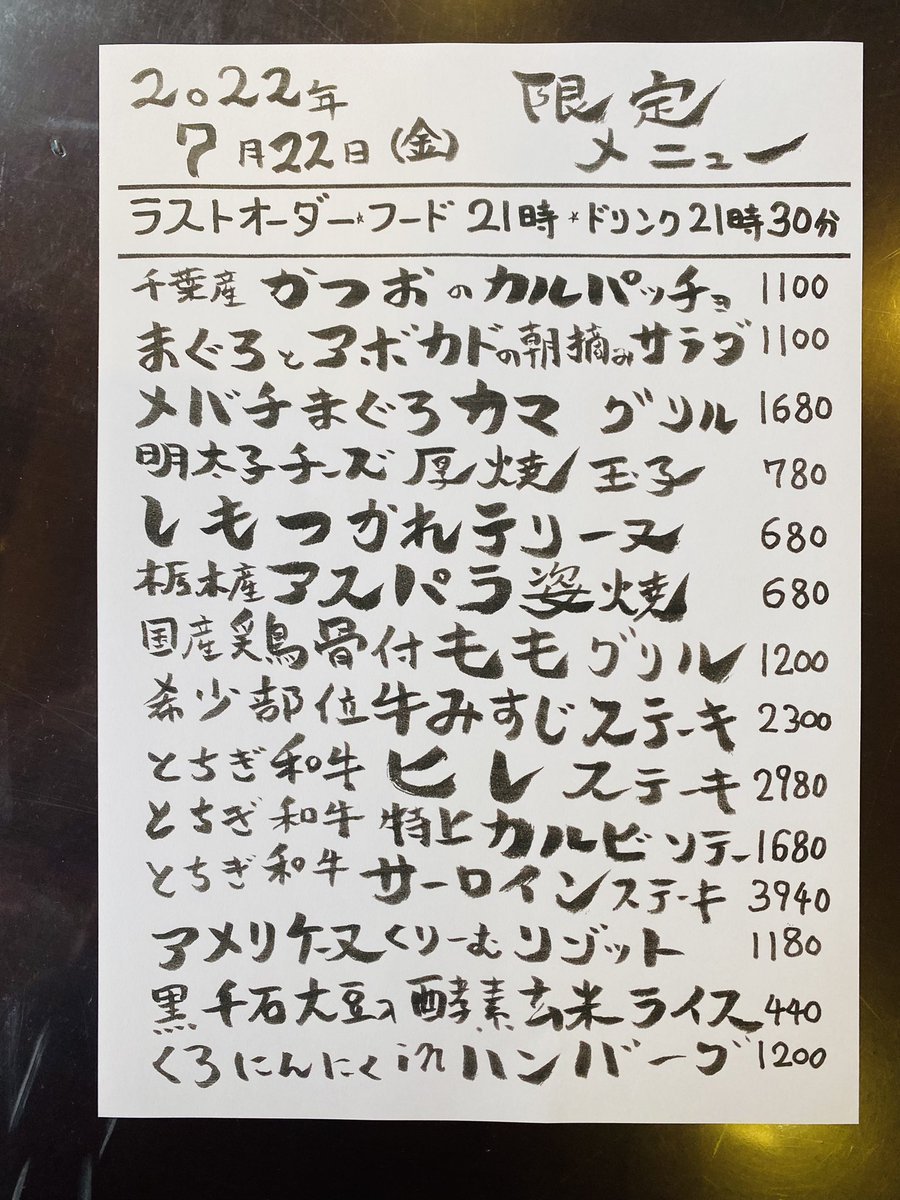 2022年
7月22日(金)
限定
メニュー
ラストオーダー☆フード 21時☆ドリンク21時30分
千葉産 かつおのカルパッチョ 1100
まぐろとアボカドの朝摘みサラダ 1100
メバチまぐろカマ グリル 1680
明太子チーズ厚焼玉子 780
しもつかれテリーヌ 680
栃木産アスパラ姿焼 680
国産鶏骨付ももグリル 1200
希少部位牛みすじステーキ 2300
とちぎ和牛 ヒレステーキ 2980
とちぎ和牛 特上カルビソテー 1680
とちぎ和牛 サーロインステーキ 3940
アメリケーヌくりーむリゾット 1180
黒千石大豆入酵素玄米ライス 440
くろにんにくinハンバーグ 1200